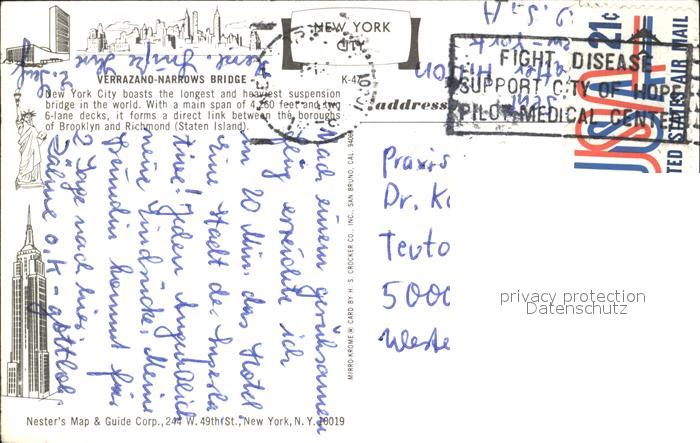 NEW YORK
CITY
VERRAZANO-NARROWS BRIDGE
K-4
New York City boasts the longest and heaviest suspension
bridge in the world. With a main span of 4,260 feet and two
6-lane decks, it forms a direct link between the boroughs
of Brooklyn and Richmond (Staten Island).
address
FIGHT DISEASE
SUPPORT CITY OF HOPE
PILOT MEDICAL CENTER
21c
USA
UNITED STATES AIR MAIL
U.S.A
Hilton
Nach einem geruhsamen
Flug erreichte ich
in 20 Min. das Hotel
eine Stadt der Superla
tive! Jeden Augenblick
neue Eindrücke. Meine
Freundin kommt für
2 Tage nach hier.
Zähne o.K - gottlob
MIRRO-KROME® CARD BY H. S. CROCKER CO., INC., SAN BRUNO, CAL. 9406
Praxis
Dr. K
Teuto
5000
Weste
privacy protection
Datenschutz
Nester's Map & Guide Corp., 244 W. 49th St., New York, N.Y. 10019